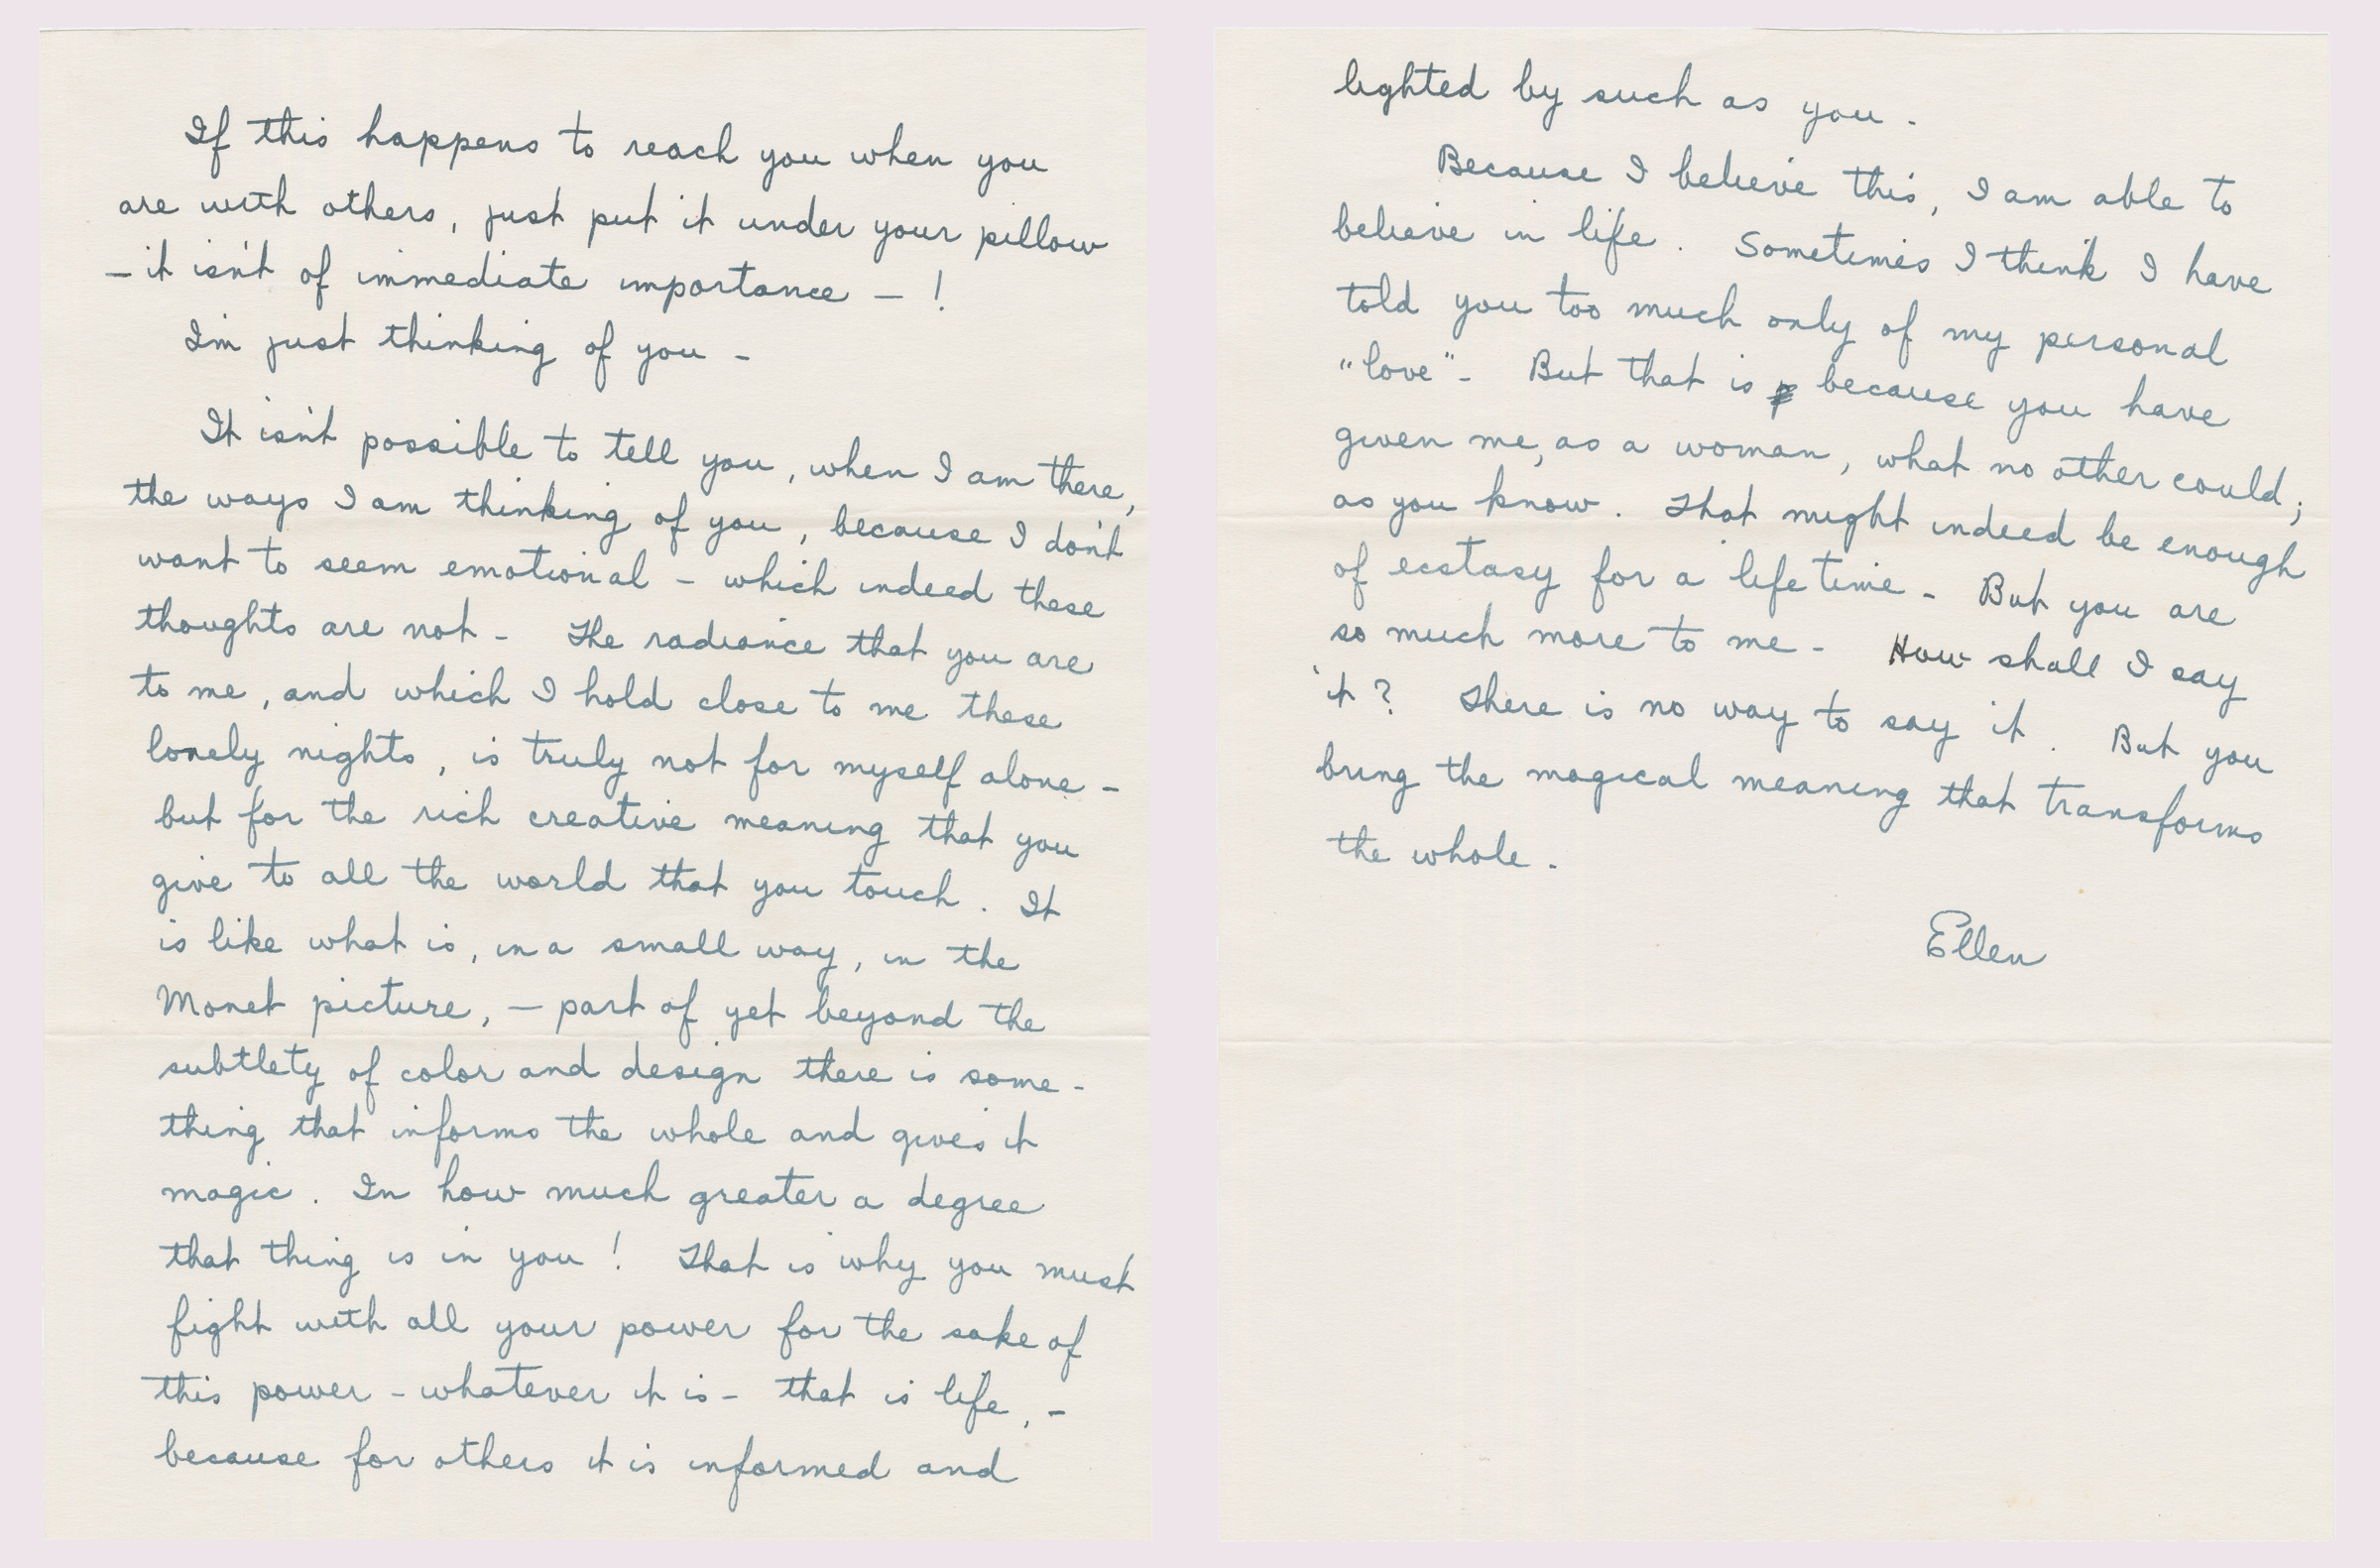 If this happens to reach you when you
are with others, just put it under your pillow
– it isn't of immediate importance – !
I'm just thinking of you –
It isn't possible to tell you, when I am there,
the ways I am thinking of you, because I don't
want to seem emotional – which indeed these
thoughts are not – The radiance that you are
to me, and which I hold close to me these
lonely nights, is truly not for myself alone –
but for the rich creative meaning that you
give to all the world that you touch. It
is like what is, in a small way, in the
Monet picture, – part of yet beyond the
subtlety of color and design there is some-
thing that informs the whole and gives it
magic. In how much greater a degree
that thing is in you! That is why you must
fight with all your power for the sake of
this power – whatever it is – that is life, –
because for others it is informed and
lighted by such as you.
Because I believe this, I am able to
believe in life. Sometimes I think I have
told you too much only of my personal
"love" – But that is because you have
given me, as a woman, what no other could;
as you know. That might indeed be enough
of ecstasy for a lifetime – But you are
so much more to me – How shall I say
it? There is no way to say it. But you
bring the magical meaning that transforms
the whole.
Ellen